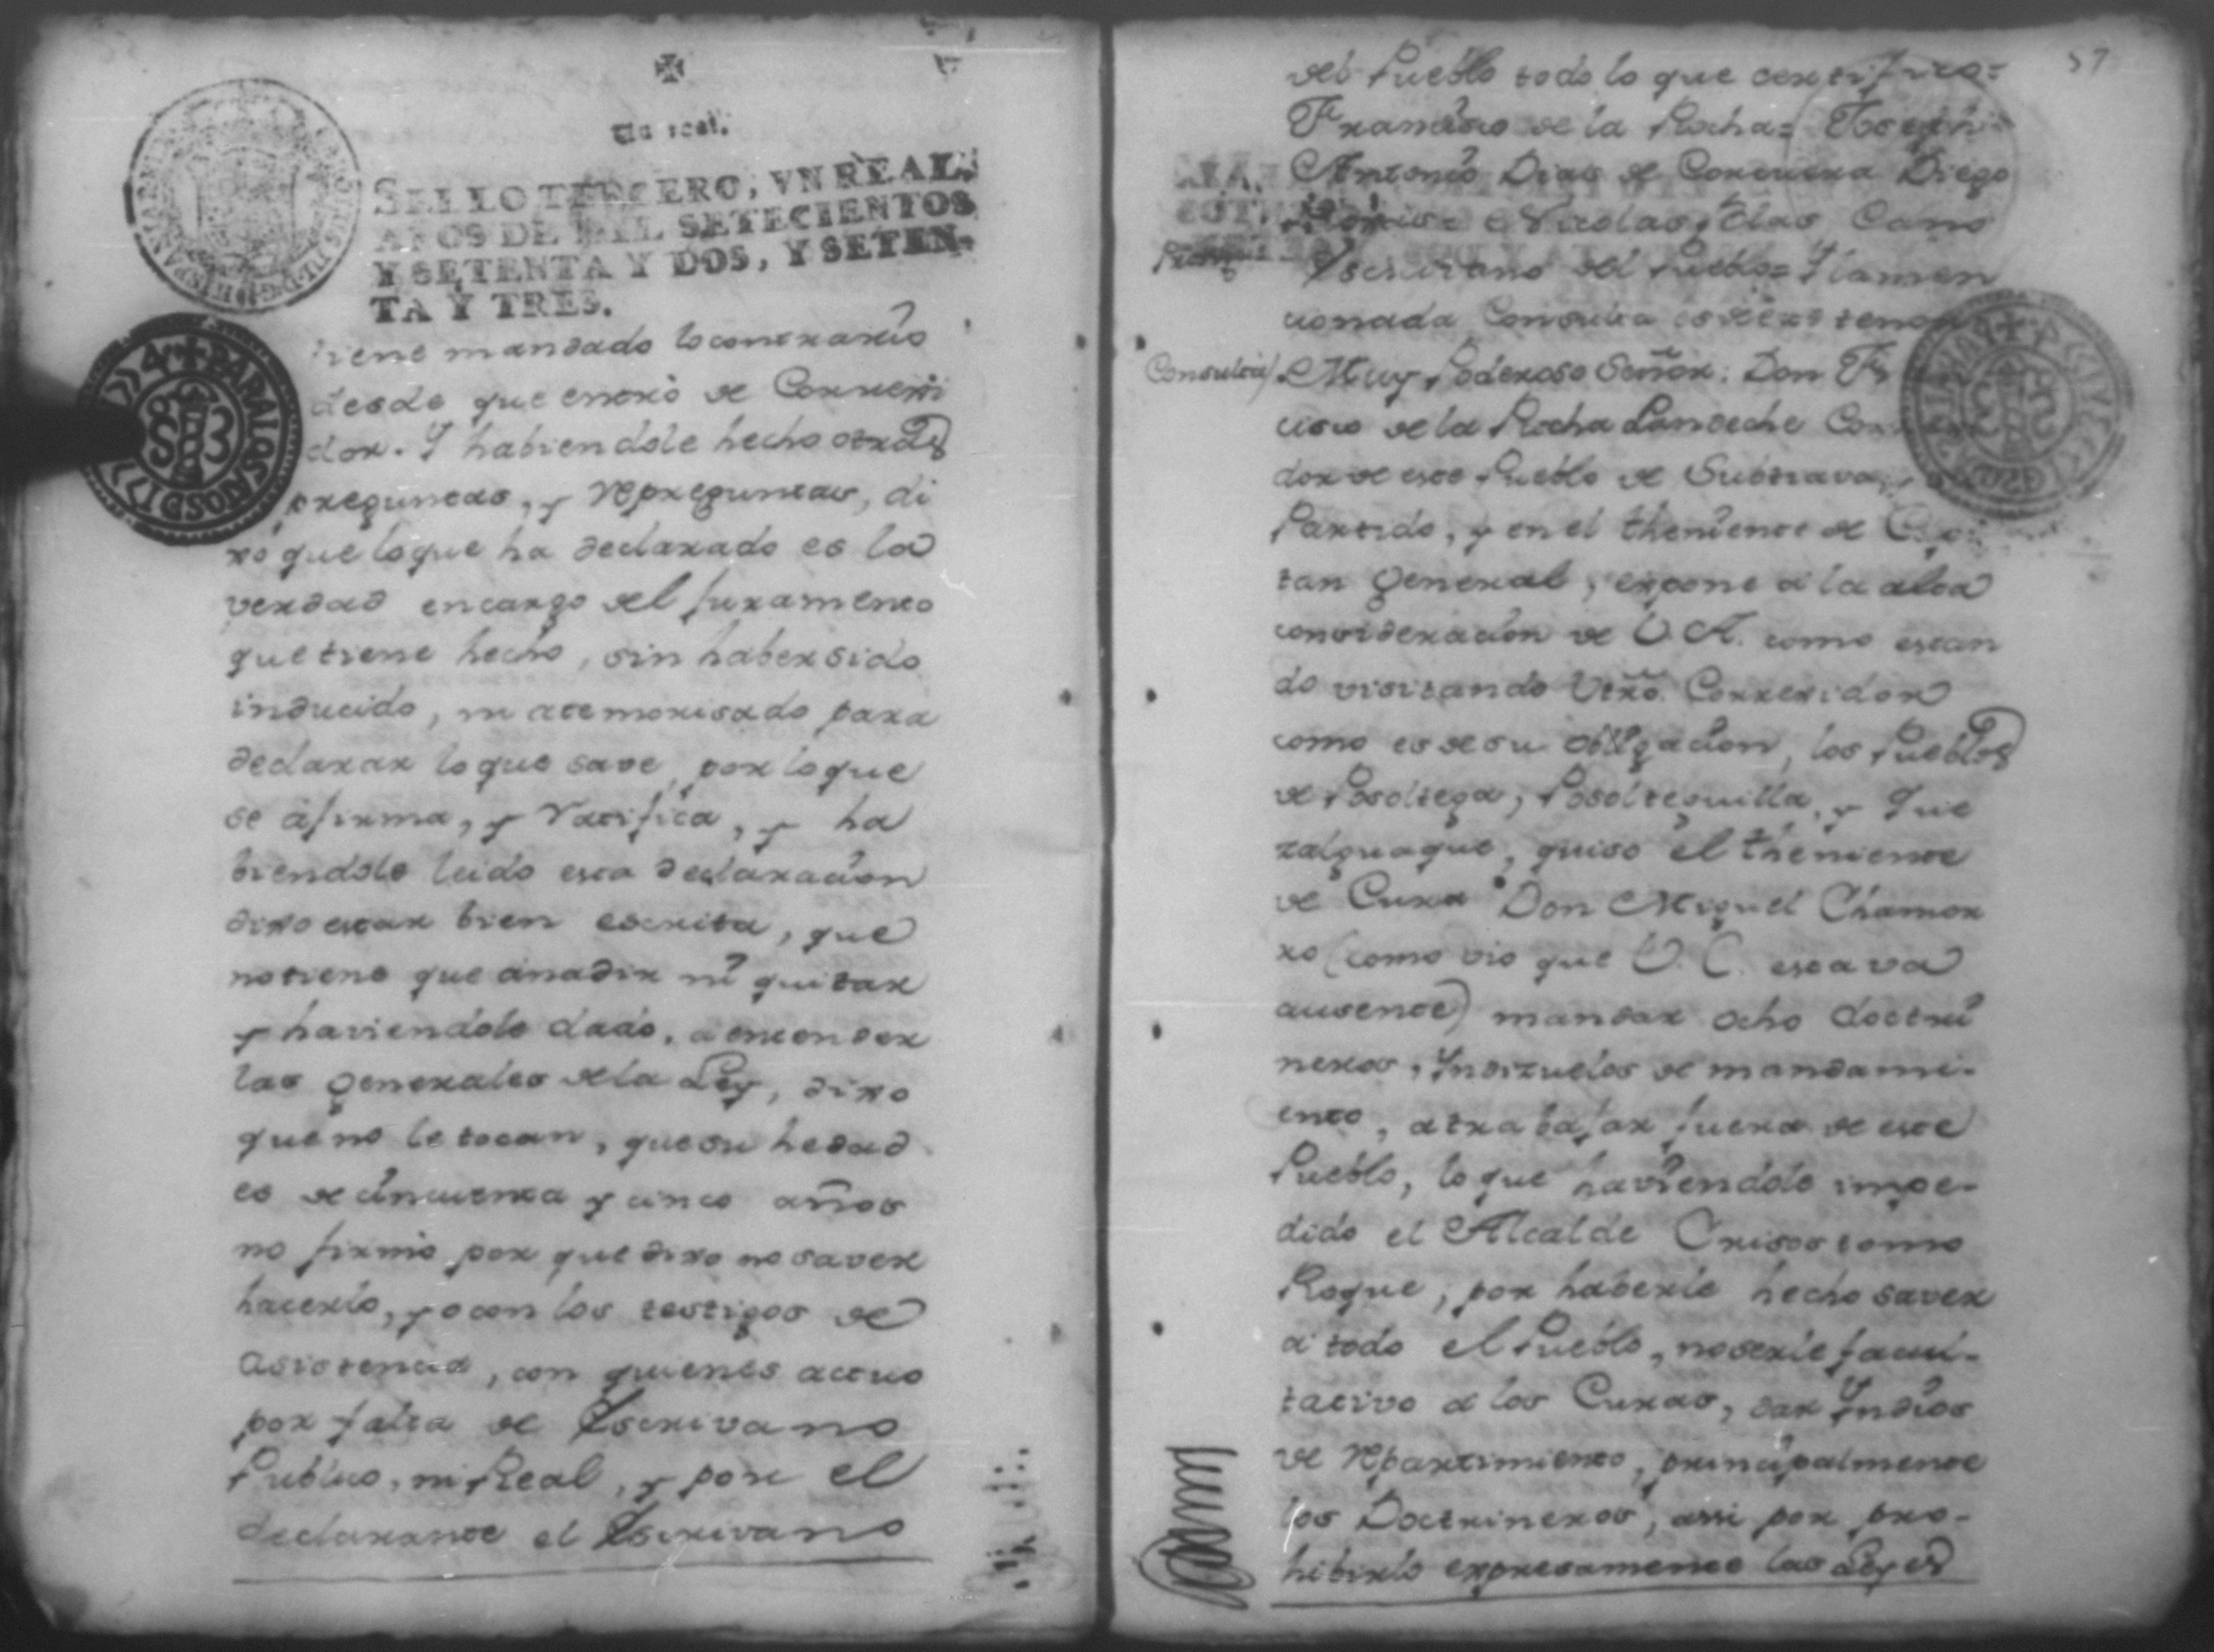 Un real.
SELLO TERCERO, VN REAL,
AÑOS DE MIL SETECIENTOS
Y SETENTA Y DOS, Y SETEN-
TA Y TRES.
tiene mandado lo contrario
desde que entró de Correxi
dor. Y habiendole hecho otras
preguntas, y repreguntas, di
xo que lo que ha declarado es la
verdad encargo del juramento
que tiene hecho, sin haber sido
inducido, ni atemorisado para
declarar lo que save, por lo que
se afirma, y ratifica, y ha
biendole leido esta declaracion
dixo estar bien escrita, que
no tiene que anadir ni quitar
y haviendole dado, a entender
las Generales de la Ley, dixo
que no le tocan, que su hedad
es de cincuenta y cinco años
no firmó por que dixo no saver
hacerlo, yo con los testigos de
asistencia, con quienes actuo
por falta de Escrivano
Publico, ni Real, y por el
declarante el Escrivano
57
del Pueblo todo lo que certifico=
Francisco de la Rocha= Joseph
Antonio Dias de Corcuera Diego
= Nicolas Blas Cano
Escrivano del Pueblo= Y la men
cionada Consulta es del tenor
Consulta / Muy Poderoso Señor: Don Fr
cisco de la Rocha Landeche Cor
dor de este Pueblo de Subtiava, y
Partido, y en el theniente de Capi
tan General, expone a la alta
consideracion de V.A. como estan
do visitando Vtro. Correxidor
como es de su obligacion, los Pueblos
de Posoltega, Posolteguilla, y Que
zalguaque, quiso el theniente
de Cura Don Miguel Chamor
ro (como vio que V. C. estava
ausente) mandar ocho doctri
neros, Yndizuelos de mandami-
ento, a trabajar fuera de este
Pueblo, lo que haviendole impe-
dido el Alcalde Crisostomo
Roque, por haberle hecho saver
a todo el Pueblo, no serle facul-
tativo a los Curas, dar Yndios
de repartimiento, principalmente
los Doctrineros, assi por pro-
hibirlo expresamente las Leyes